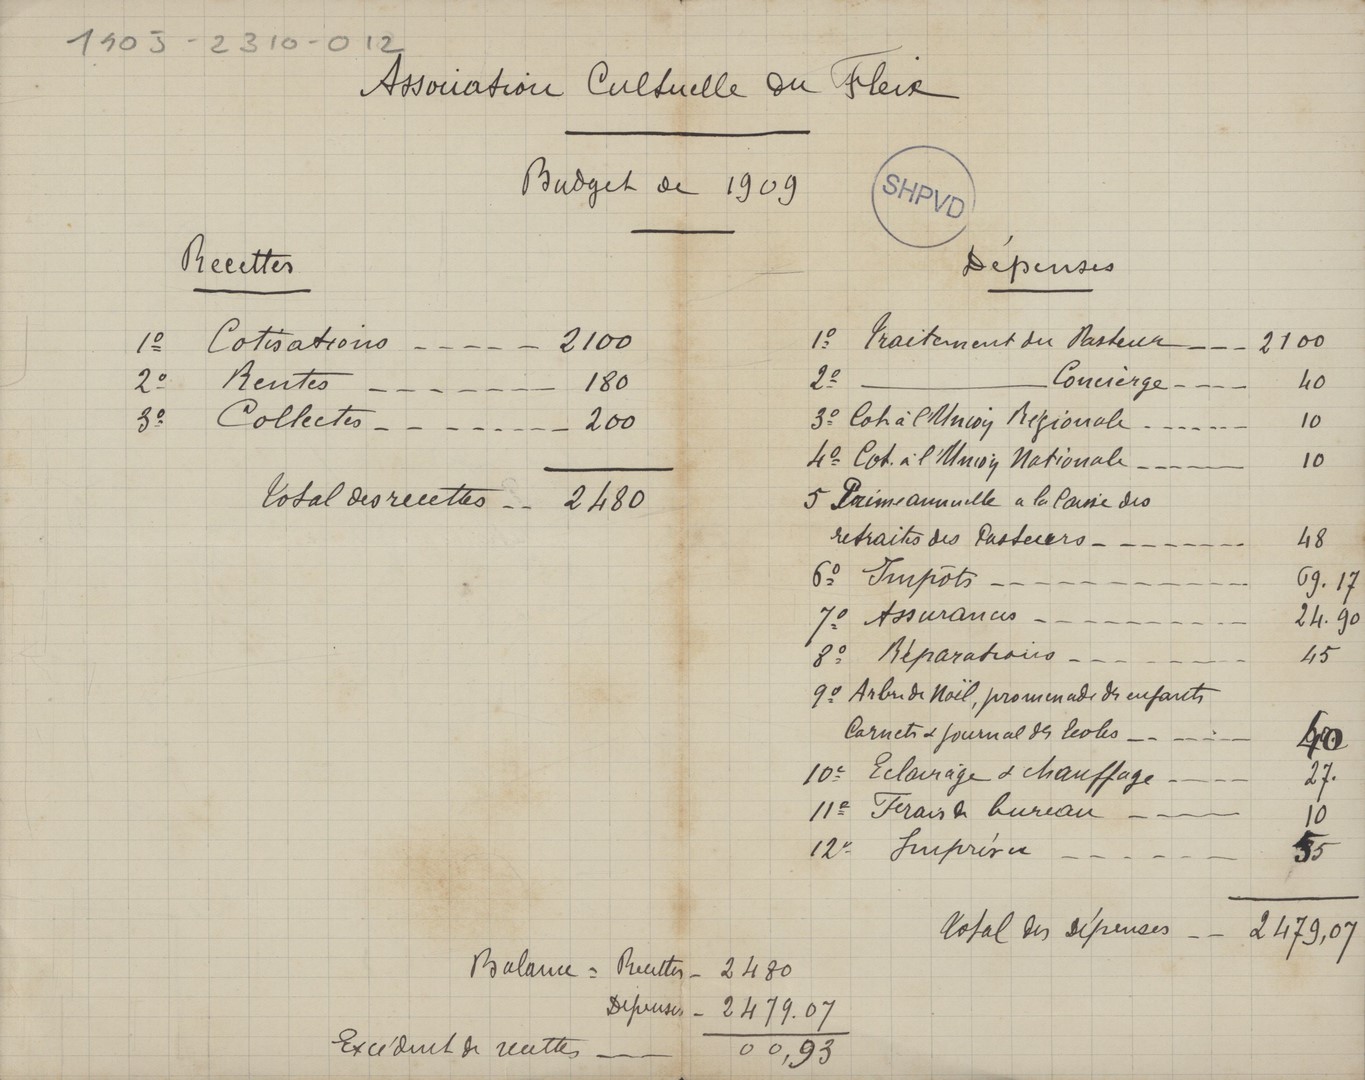 1903-2310-012
Association Cultuelle du Fleix
Budget de 1909
SHPVD
Recettes
1º Cotisations ----- 2100
2º Rentes ------- 180
3º Collectes -------- 200
Total des recettes -- 2480
Dépenses
1º Traitement du Pasteur --- 2100
2º ———— Concierge ---- 40
3º Cot. à l'Union Régionale ------ 10
4º Cot. à l'Union Nationale ----- 10
5 Prime annuelle a la Caisse des
retraites des Pasteurs -------- 48
6º Impôts ------------ 69.17
7º Assurances ---------- 24.90
8º Réparations -------- 45
9º Arbre de Noël, promenade des enfants
Carnets & journal des Ecoles ------ 40
10º Eclairage & chauffage ---- 27.
11º Frais de bureau ---- 10
12º Imprévu ------ 55
Total des dépenses -- 2479,07
Balance = Recettes - 2480
Dépenses - 2479.07
Excédent de recettes —— 00,93